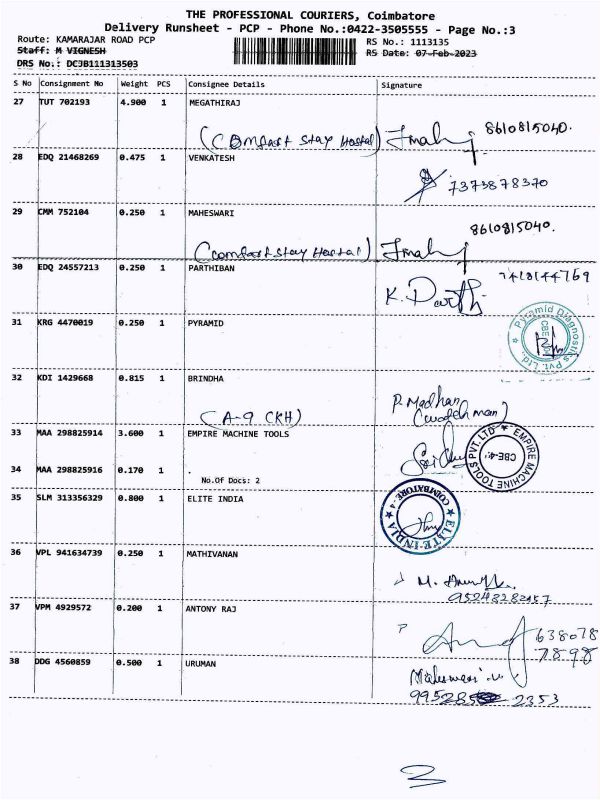 THE PROFESSIONAL COURIERS, Coimbatore
Delivery Runsheet - PCP - Phone No.:0422-3505555 - Page No.:3
Route: KAMARAJAR ROAD PCP
RS No.: 1113135
Staff: M VIGNESH
RS Date: 07-Feb-2023
DRS No.: DCJB111313503
S No Consignment No Weight PCS Consignee Details Signature
27 TUT 702193 4.900 1 MEGATHIRAJ
(Comfort Stay Hostal) 8610815040.
28 EDQ 21468269 0.475 1 VENKATESH
7373878370
29 CMM 752104 0.250 1 MAHESWARI
8610815040.
(Comfort Stay Hostal)
30 EDQ 24557213 0.250 1 PARTHIBAN
7418144769
K. Parthi
31 KRG 4470019 0.250 1 PYRAMID
Pyramid Diagnostics Pvt. Ltd.,
CBE
32 KDI 1429668 0.815 1 BRINDHA
P. Madhan
(A-9 (KH)
(watchman)
33 MAA 298825914 3.600 1 EMPIRE MACHINE TOOLS
EMPIRE MACHINE TOOLS PVT.LTD
CBE-4
34 MAA 298825916 0.170 1
No.Of Docs: 2
35 SLM 313356329 0.800 1 ELITE INDIA
ELITE INDIA
COIMBATORE-4
36 VPL 941634739 0.250 1 MATHIVANAN
M.
37 VPM 4929572 0.200 1 ANTONY RAJ
638078
7898
38 DDG 4560859 0.500 1 URUMAN
Maheswari
2353